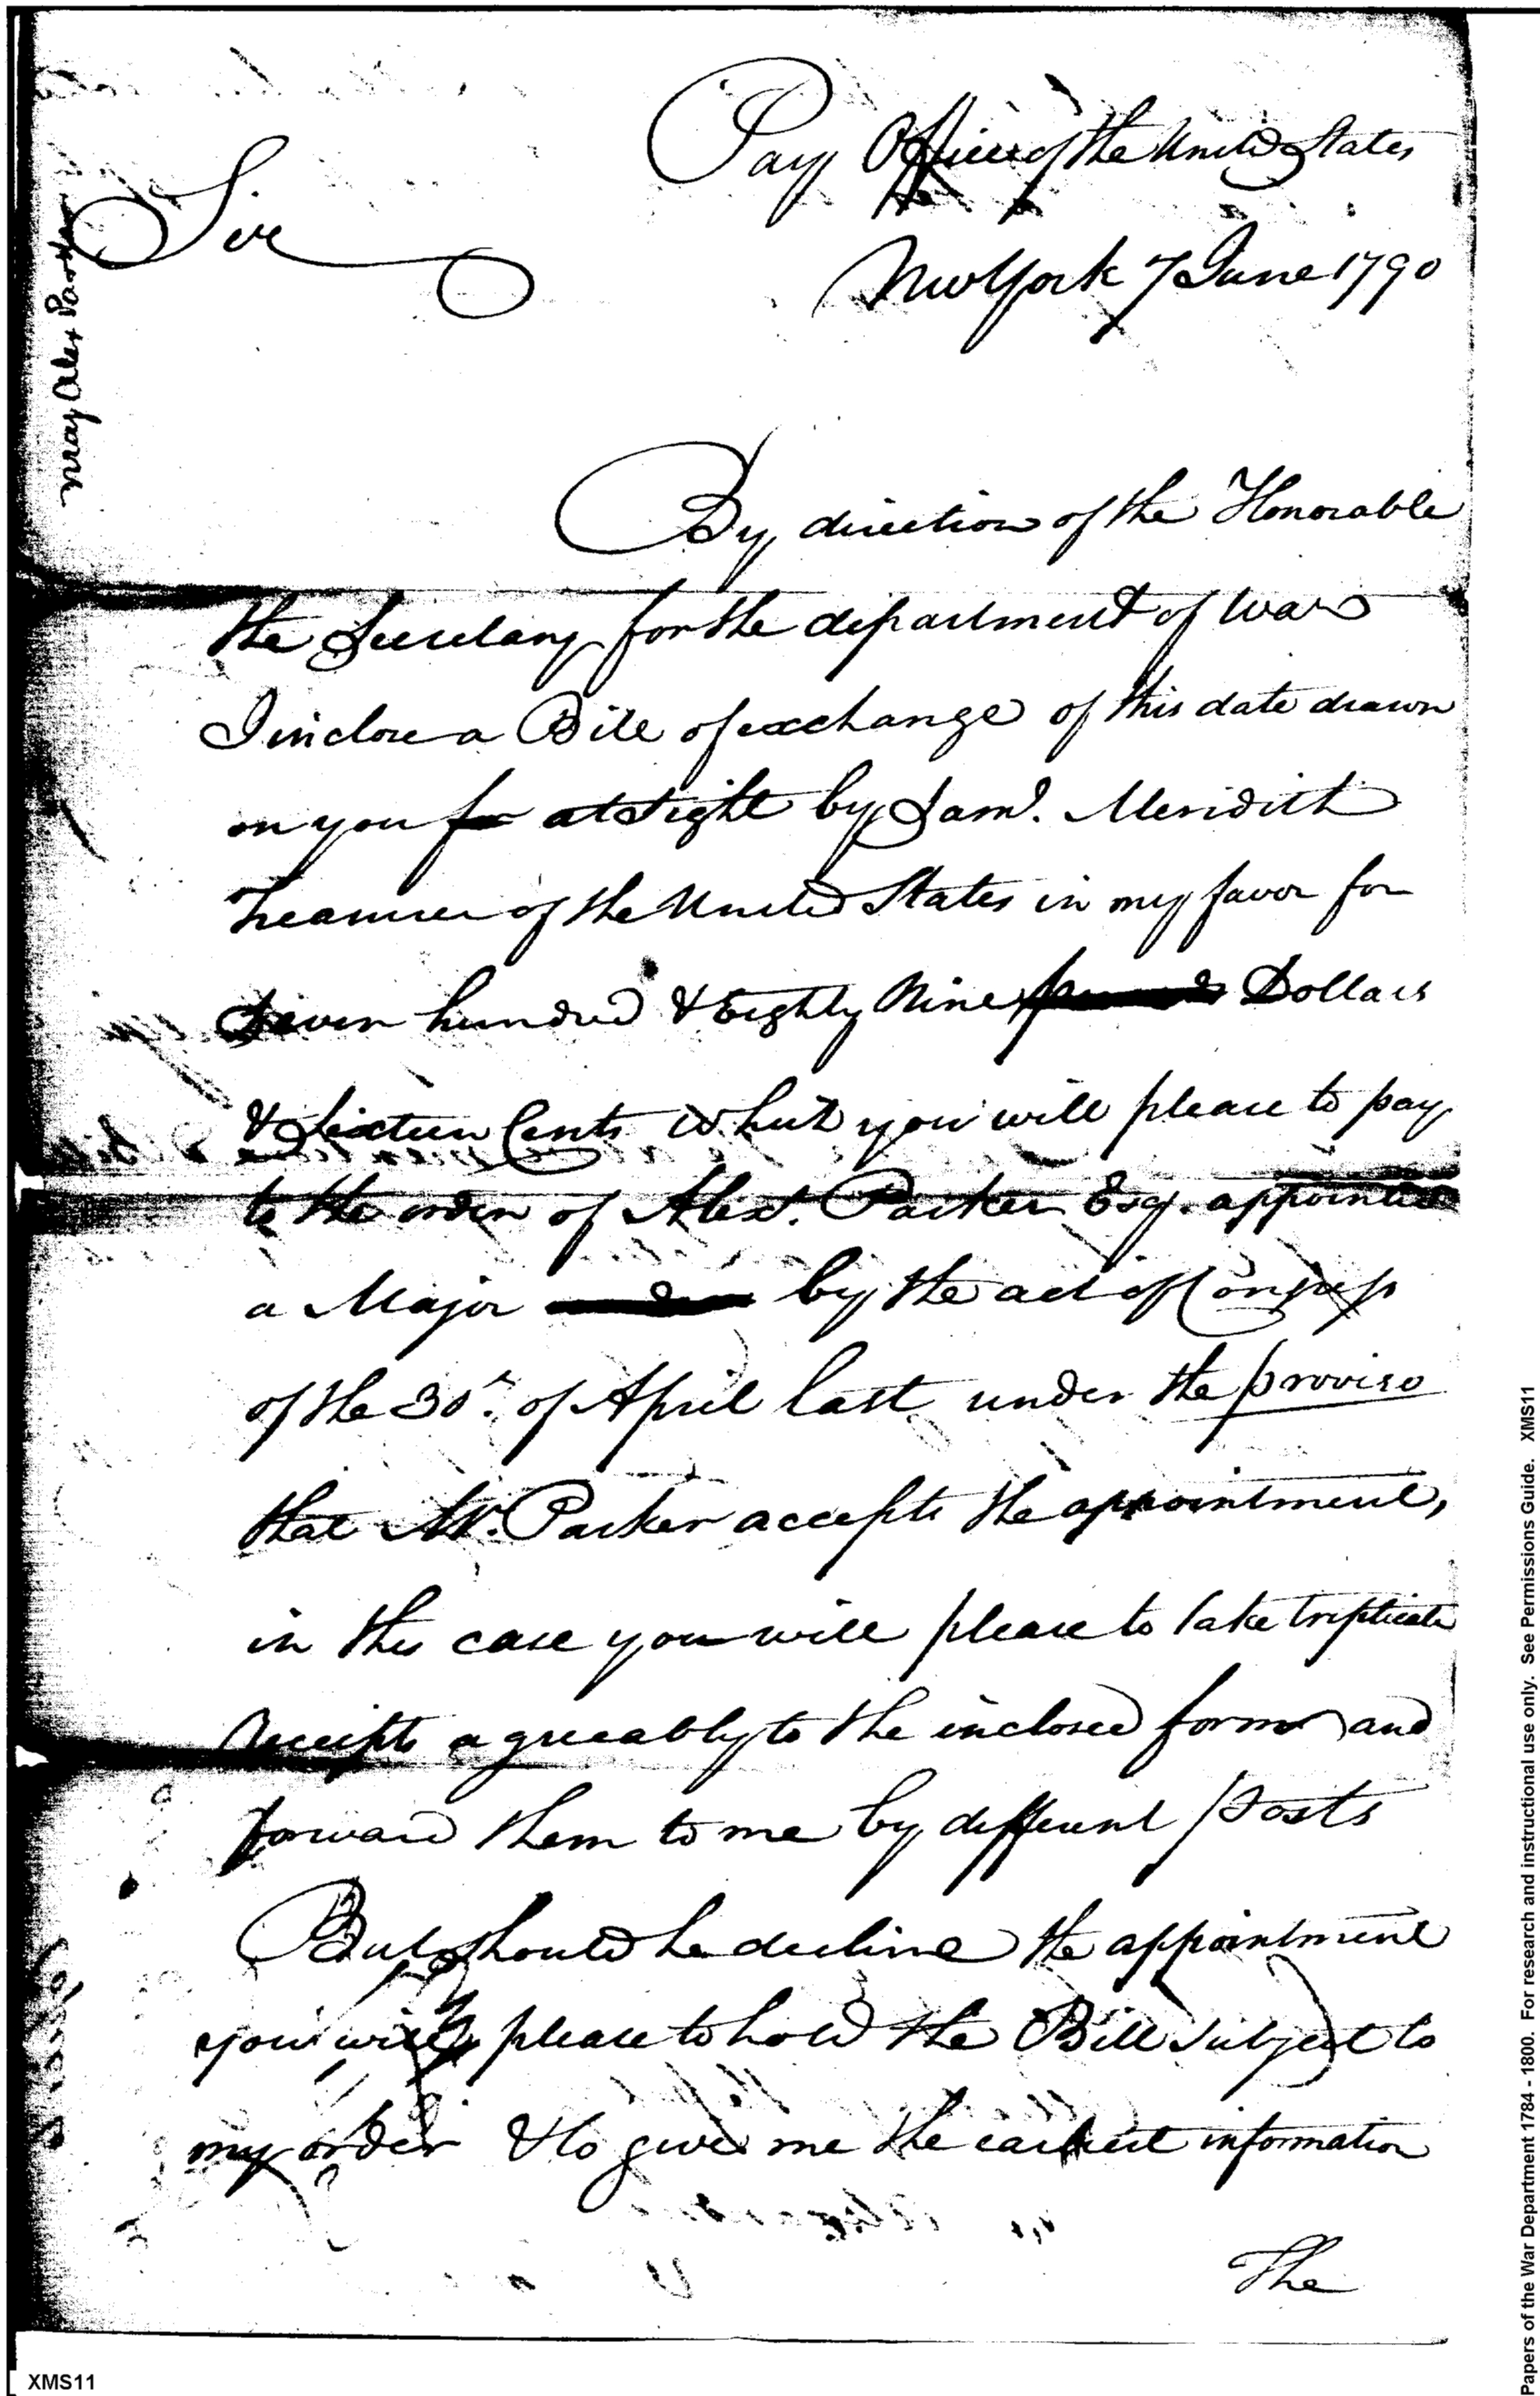 Pay Office of the United States
Sir
New York 7 June 1790
May Alex Parker
By direction of the Honorable
the Secretary for the department of War
I inclose a Bill of exchange of this date drawn
on you for at sight by Saml. Meridith
Treasurer of the United States in my favor for
Seven hundred & Eighty Nine Dollars
& Sixteen Cents which you will please to pay
to the order of Alexr. Parker Esq. appointed
a Major by the act of Congress
of the 30th. of April last under the proviso
that Mr. Parker accepts the appointment,
in this case you will please to take triplicate
receipts agreeably to the inclosed form and
forward them to me by different posts
But should he decline the appointment
you will please to hold the Bill subject to
my order & to give me the earliest information
The
XMS11
Papers of the War Department 1784 - 1800. For research and instructional use only. See Permissions Guide. XMS11